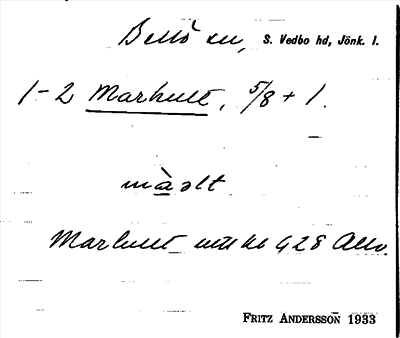 Bellö sn, S. Vedbo hd, Jönk. l.
1-2 Marhult, 5/8 + 1.
màₔlt
Marhult 428
FRITZ ANDERSSON 1933